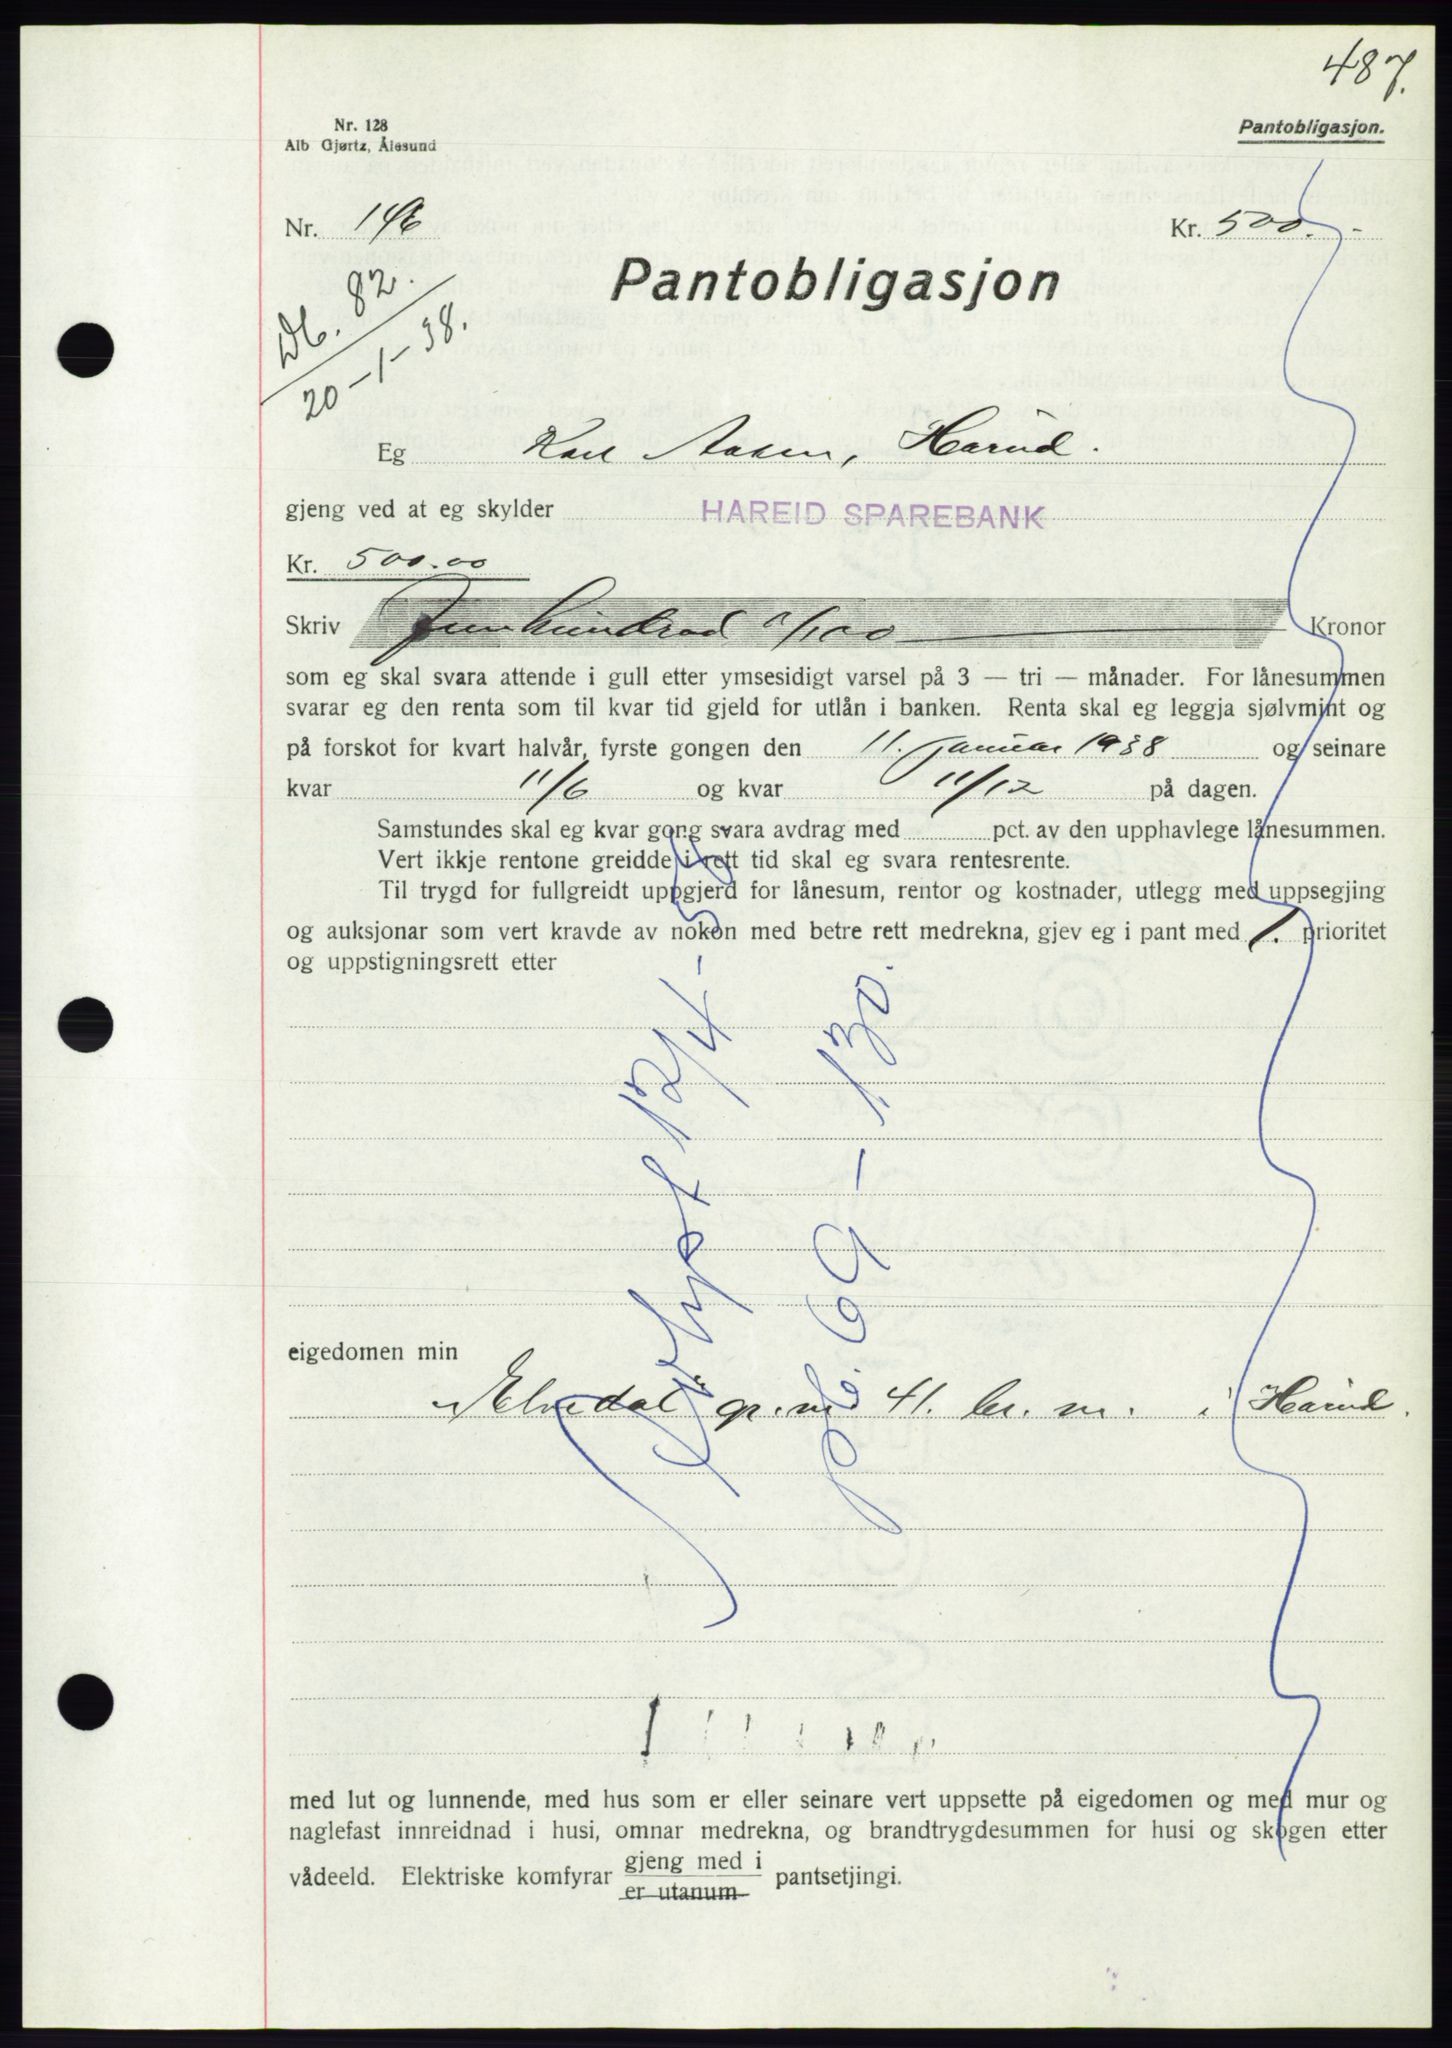 487.
Nr. 128
Alb Gjørtz, Ålesund
Pantobligasjon.
Nr. 146
Kr. 500.-
Pantobligasjon
Db. 82.
20-1-38.
Eg Karl Aasen, Hareid.
gjeng ved at eg skylder HAREID SPAREBANK
Kr. 500.00
Skriv Femhundrad 0/100 Kronor
som eg skal svara attende i gull etter ymsesidigt varsel på 3 — tri — månader. For lånesummen
svarar eg den renta som til kvar tid gjeld for utlån i banken. Renta skal eg leggja sjølvmint og
på forskot for kvart halvår, fyrste gongen den 11. januar 1938 og seinare
kvar 11/6 og kvar 11/12 på dagen.
Samstundes skal eg kvar gong svara avdrag med pct. av den upphavlege lånesummen.
Vert ikkje rentone greidde i rett tid skal eg svara rentesrente.
Til trygd for fullgreidt uppgjerd for lånesum, rentor og kostnader, utlegg med uppsegjing
og auksjonar som vert kravde av nokon med betre rett medrekna, gjev eg i pant med 1. prioritet
og uppstigningsrett etter
12/4-58
pb. 69 - 130.
eigedomen min
"Elvedal" gr. nr. 41. br. nr. i Hareid.
med lut og lunnende, med hus som er eller seinare vert uppsette på eigedomen og med mur og
naglefast innreidnad i husi, omnar medrekna, og brandtrygdesummen for husi og skogen etter
vådeeld. Elektriske komfyrar gjeng med i pantsetjingi.
er utanum